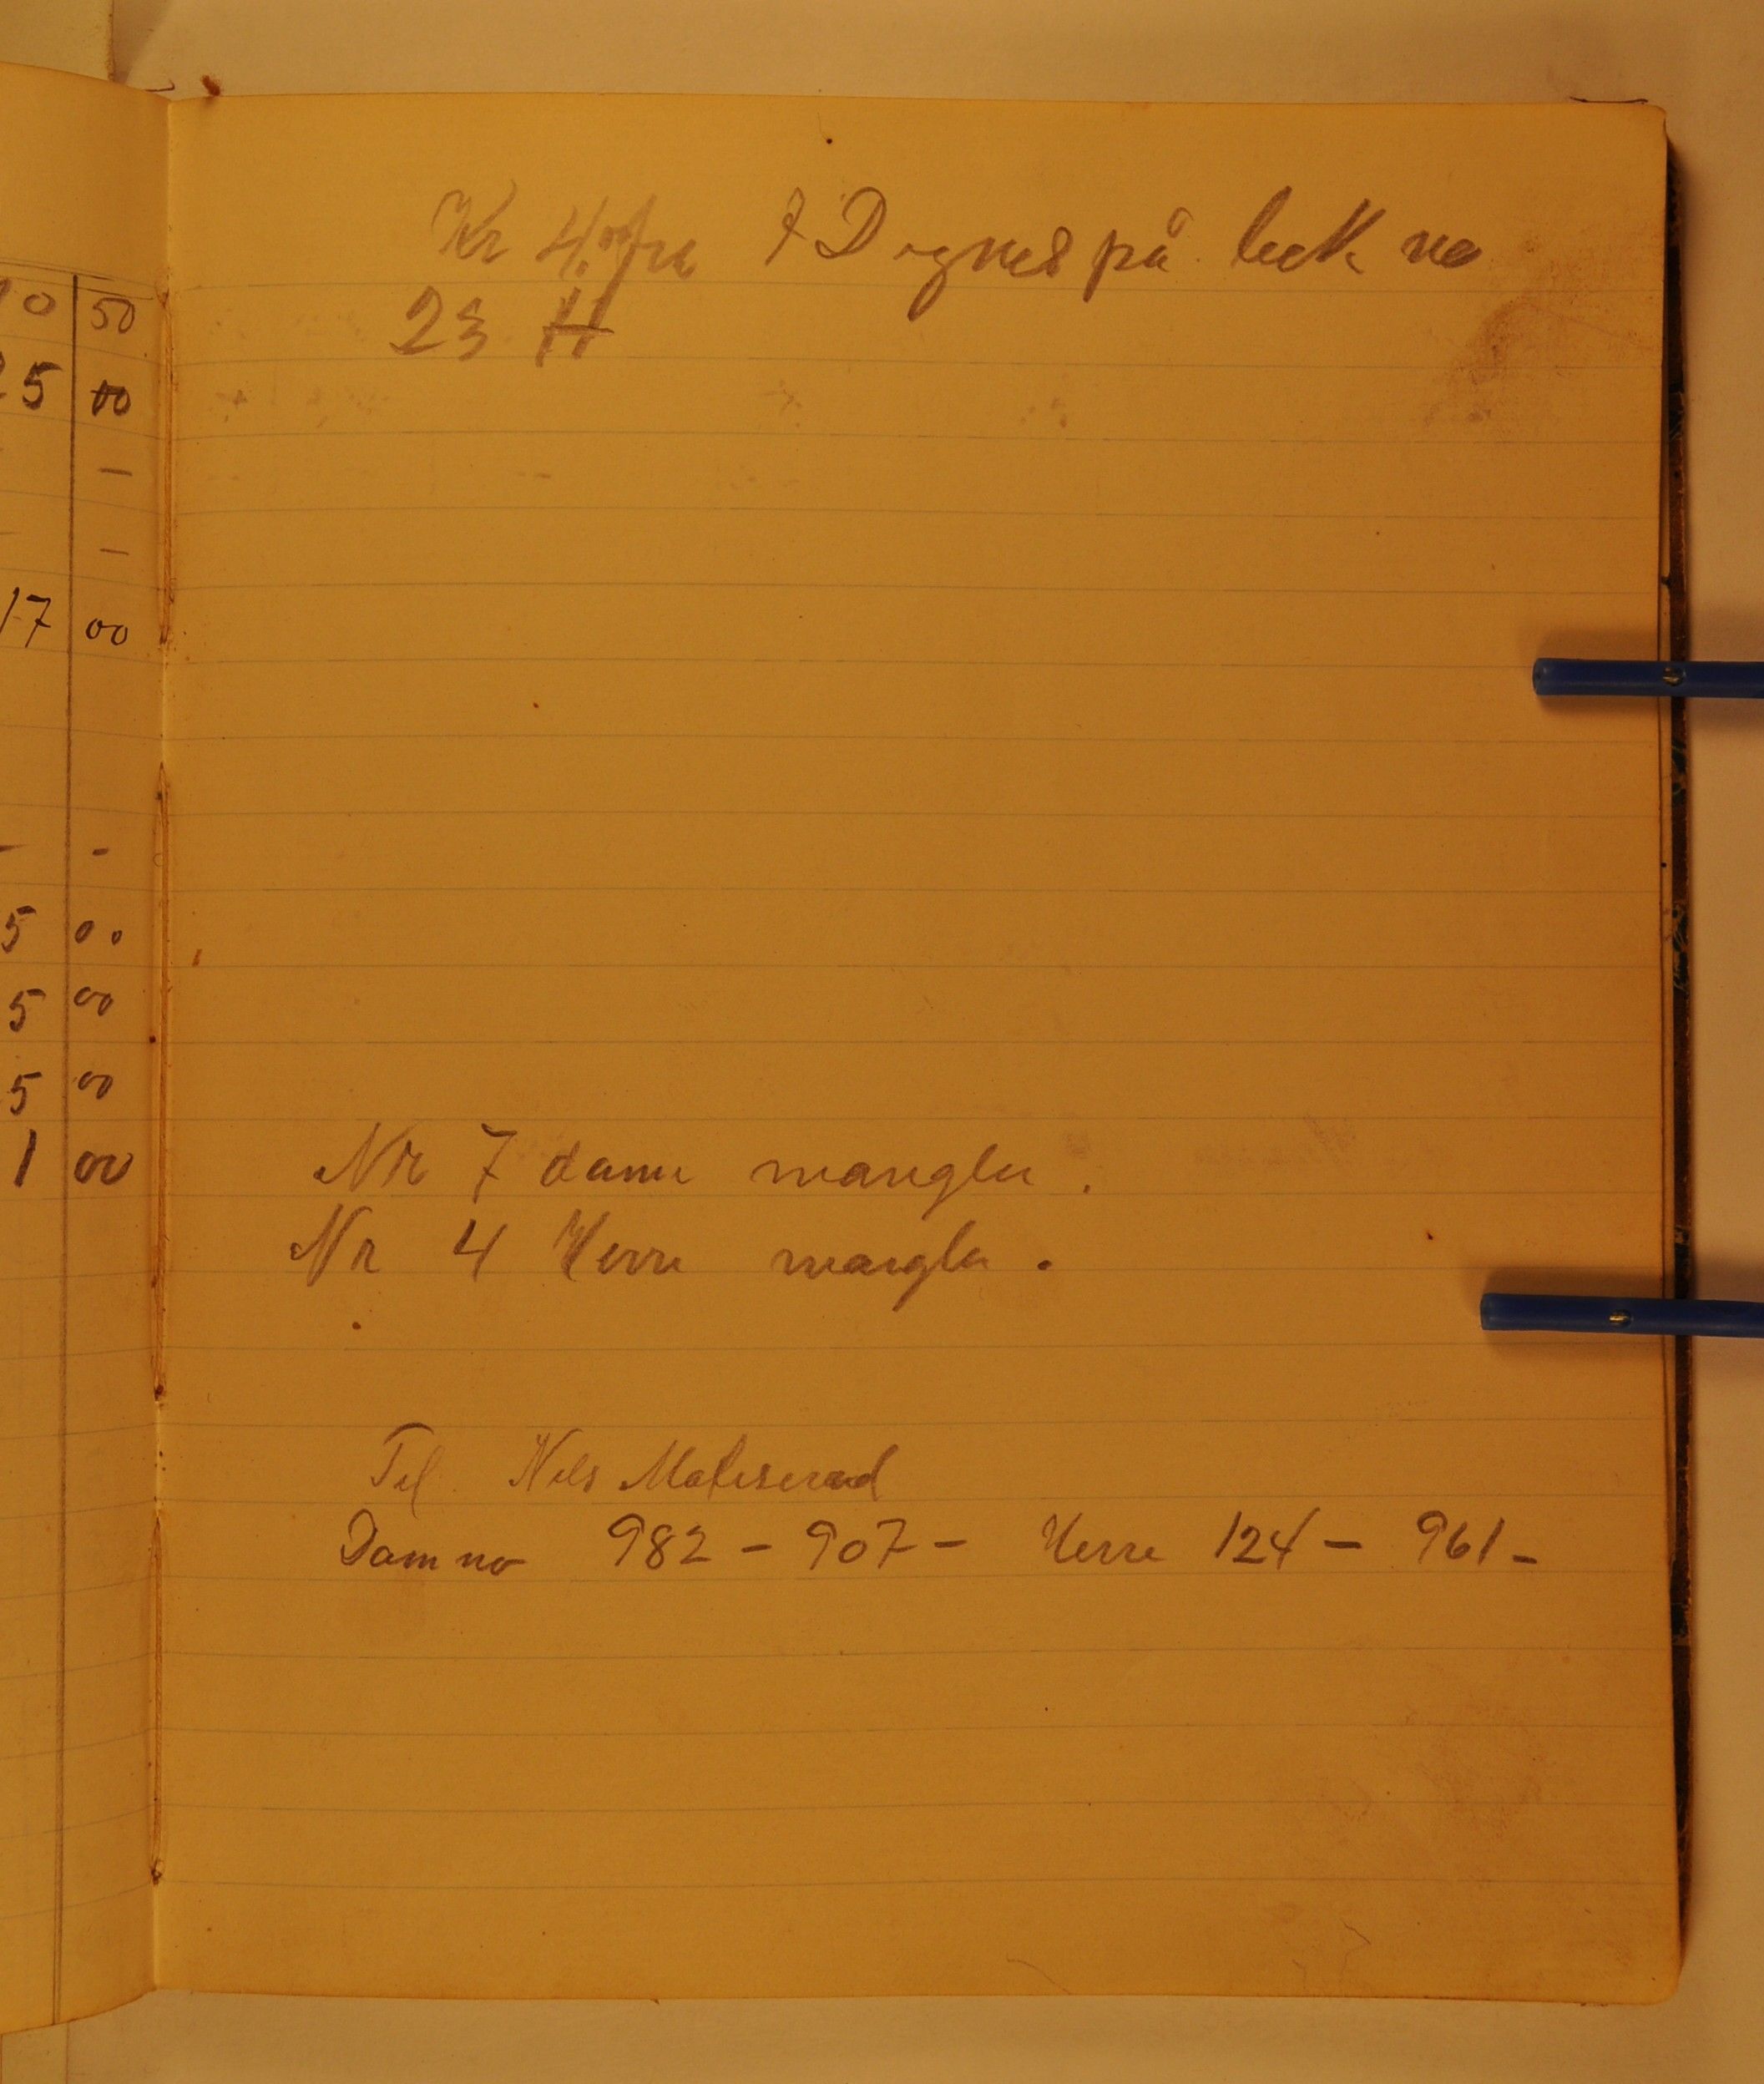 10 50
25 00
—
—
17 00
- -
5 00
5 00
5 00
1 00
Kr 4.00 fra på lek no
23 H
Nr 7 dame mangler.
Nr 4 Herre mangler.
Tel. Nils
Dam no 982 - 907 - Herre 124 - 961 -